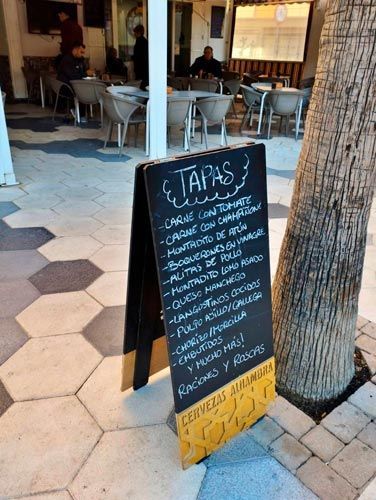 TAPAS
- CARNE CON TOMATE
- CARNE CON CHAMPAÑONE
- MONTADITO DE ATÚN
- BOQUERONES EN VINAGRE
- ALITAS DE POLLO
- MONTADITO LOMO ASADO
- QUESO MANCHEGO
- LANGOSTINOS COCIDOS
- PULPO AJILLO/GALLEGA
- CHORIZO/MORCILLA
- EMBUTIDOS
Y MUCHO MÁS!
RACIONES Y ROSCAS
CERVEZAS ALHAMBRA